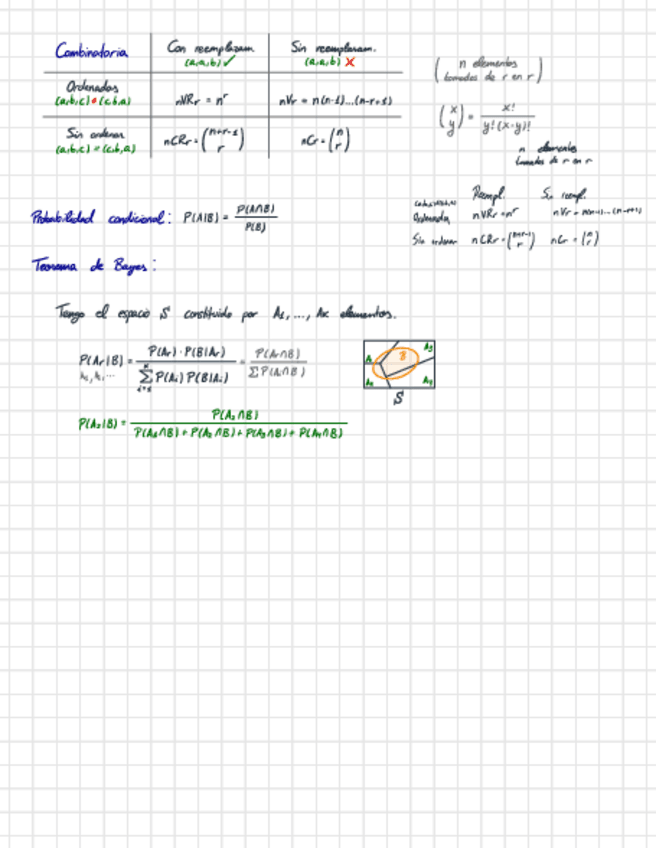 Combinatoria
Con reemplazam. (a,a,b) ✓
Sin reemplazam. (a,a,b) X
Ordenados (a,b,c) ≠ (c,b,a)
nVRr = n^r
nVr = n(n-1)...(n-r+1)
Sin ordenar (a,b,c) = (c,b,a)
nCRr = (n+r-1 / r)
nCr = (n / r)
( n elementos
tomados de r en r )
(x / y) = x! / y!(x-y)!
n elementos
tomados de r en r
Reempl. Sin reempl.
Ordenada nVRr = n^r nVr = n(n-1)...(n-r+1)
Sin ordenar nCRr = (n+r-1 / r) nCr = (n / r)
Probabilidad condicional: P(A|B) = P(A∩B) / P(B)
Teorema de Bayes:
Tengo el espacio S constituido por A₁, ..., Aₖ elementos.
P(Ar|B) = P(Ar)·P(B|Ar) / Σ P(Ai) P(B|Ai) = P(Ar∩B) / Σ P(Ai∩B)
B
S
P(A₂|B) = P(A₂∩B) / P(A₁∩B) + P(A₂∩B) + P(A₃∩B) + P(A₄∩B)